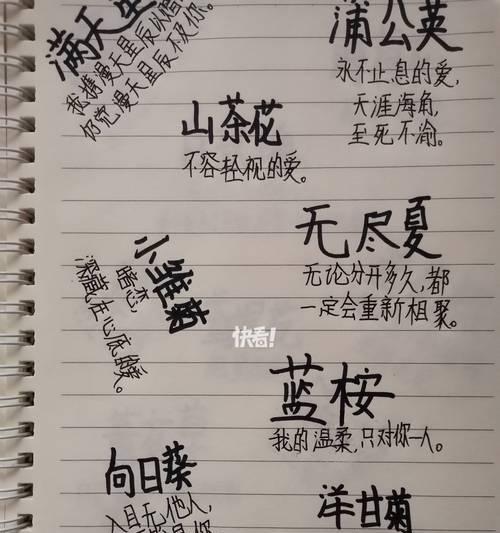 满天星
我携漫天星辰以赠你,
仍觉漫天星辰不及你。
蒲公英
永不止息的爱,
天涯海角,
至死不渝。
山茶花
不容轻视的爱。
无尽夏
无论分开多久,都
一定会重新相聚。
小雏菊
暗恋,
深藏在心底的爱。
快看!
蓝桉
我的温柔,只对你一人。
向日葵
入目无他人,
是你
洋甘菊